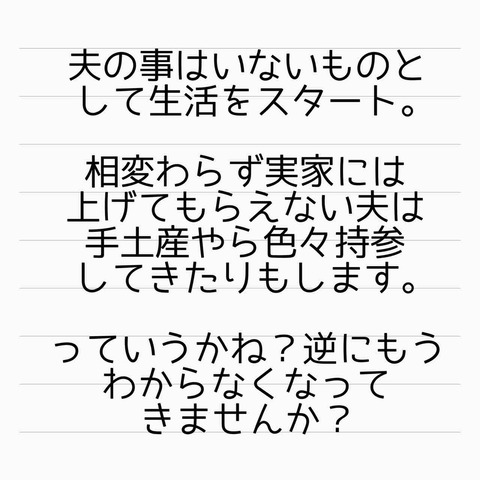 夫の事はいないものと
して生活をスタート。
相変わらず実家には
上げてもらえない夫は
手土産やら色々持参
してきたりもします。
っていうかね？逆にもう
わからなくなって
きませんか？